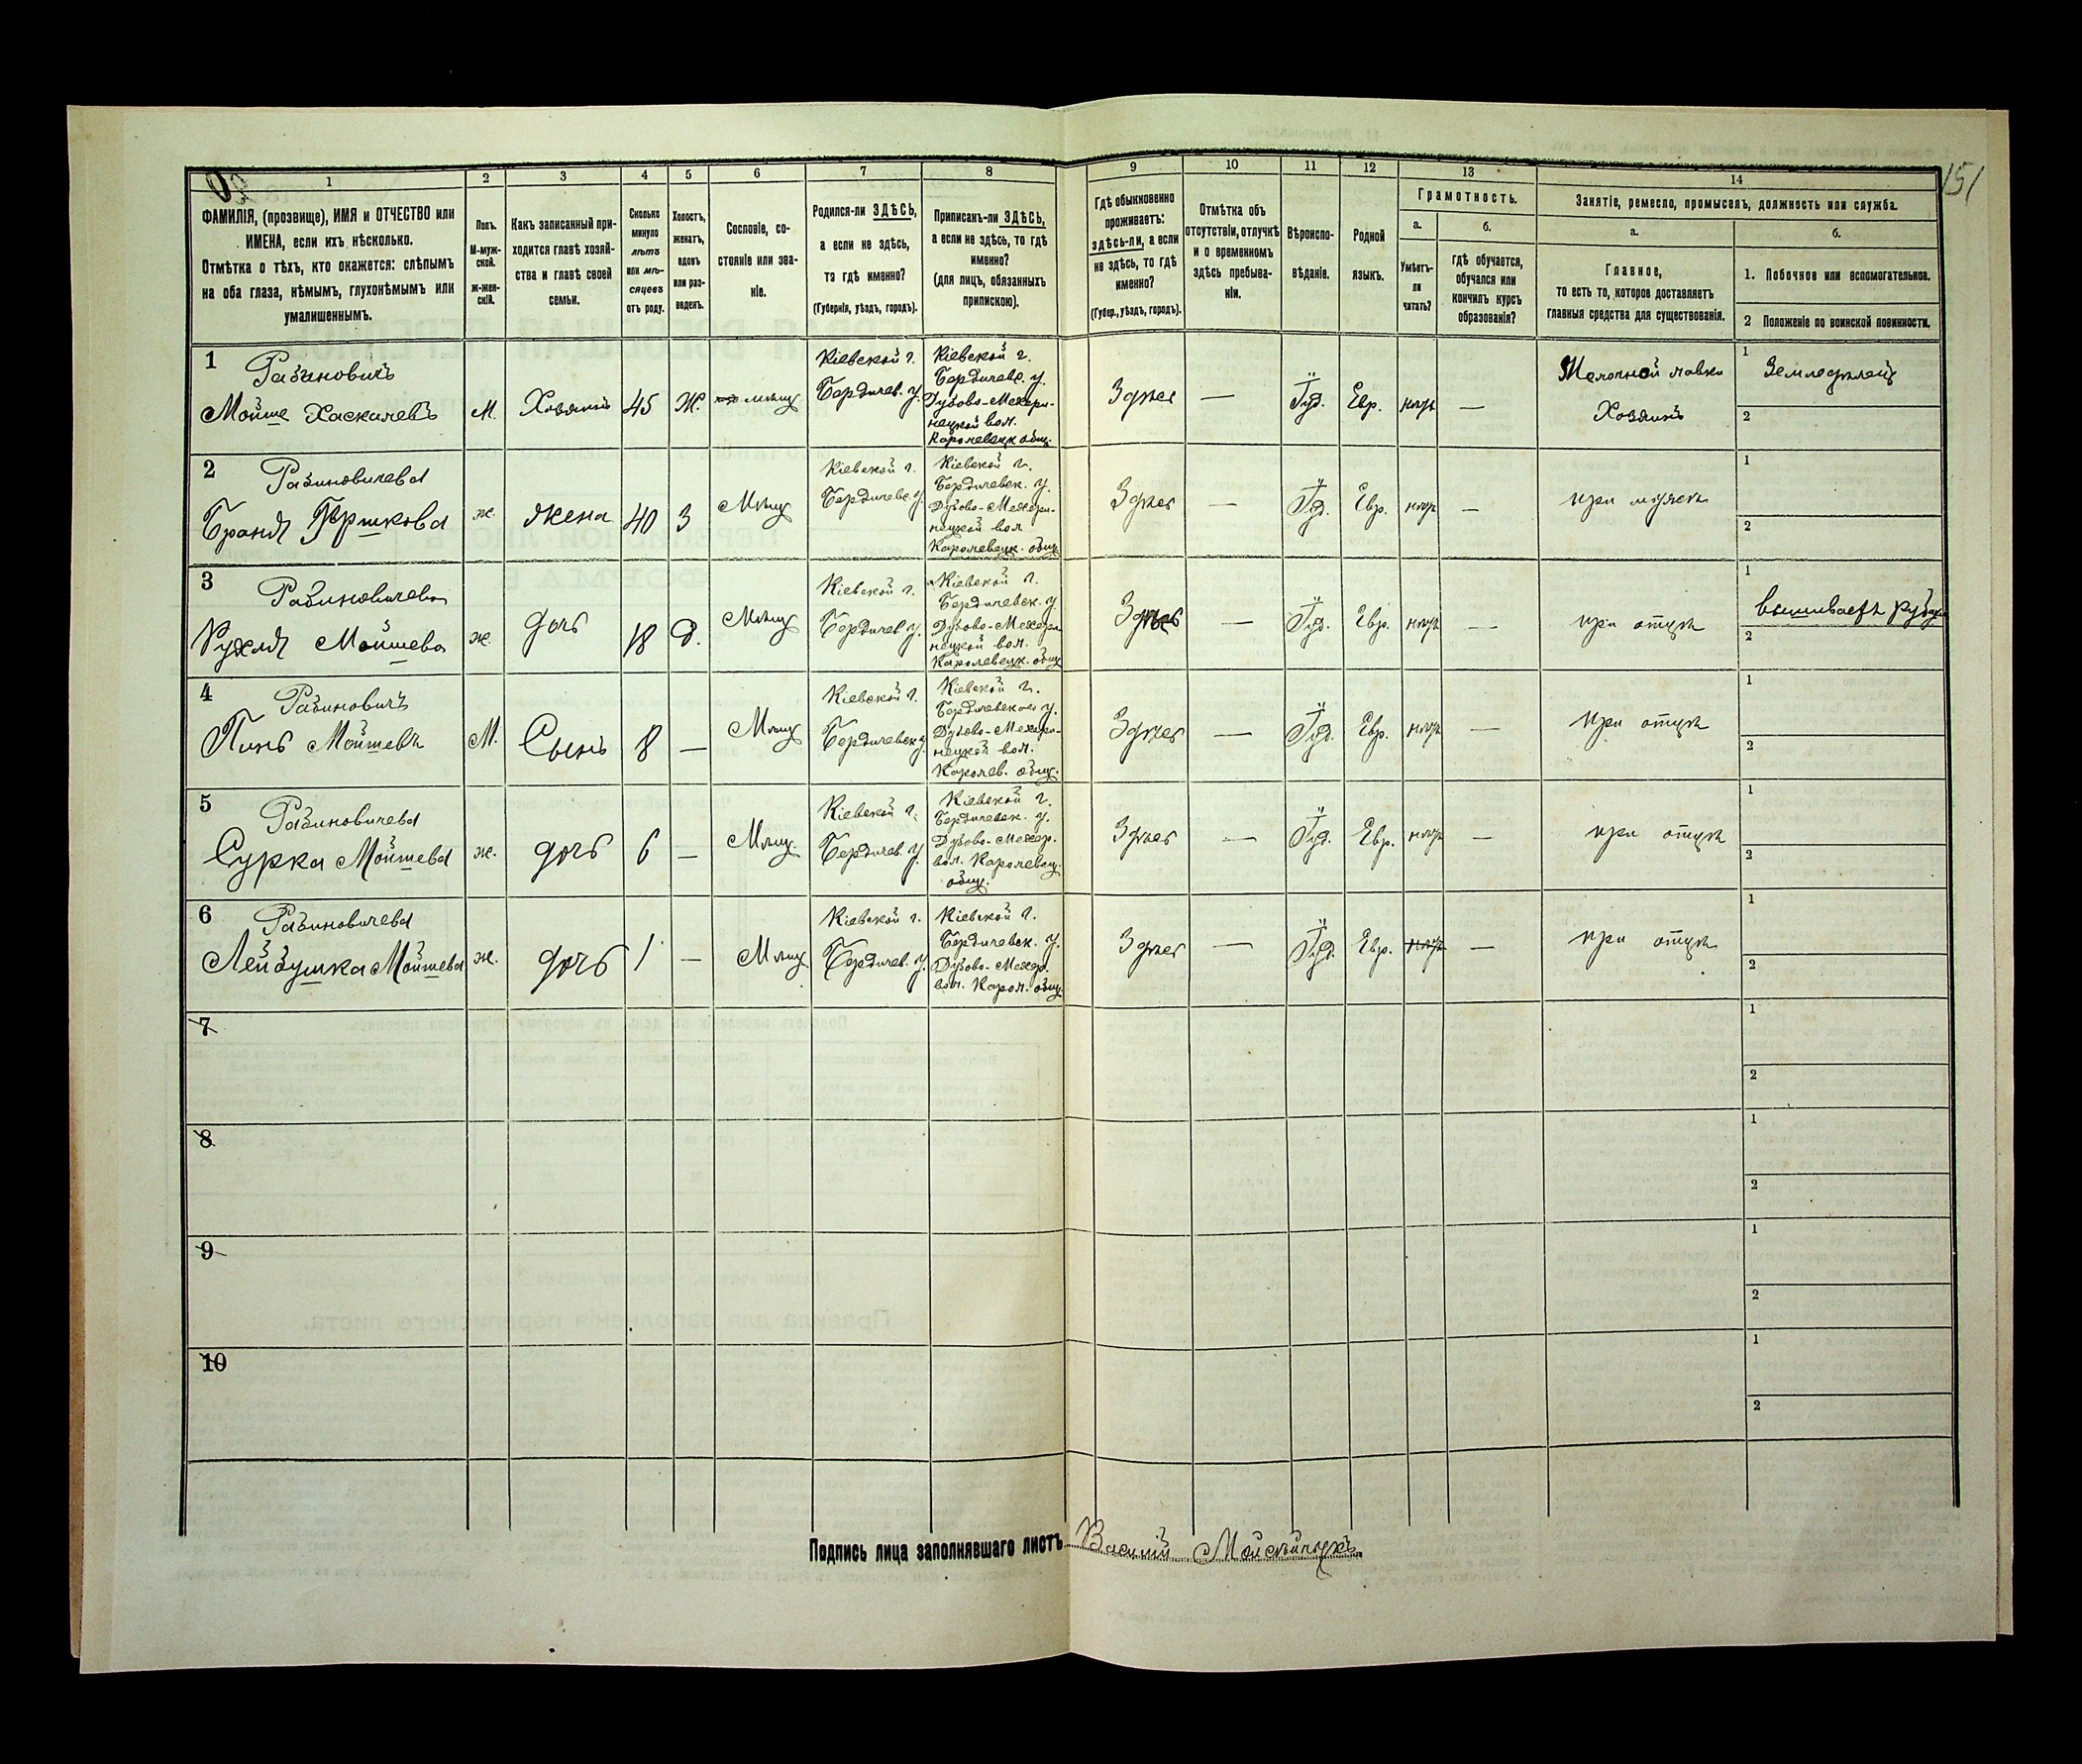 151
1
2
3
4
5
6
7
8
9
10
11
12
13
14
ФАМИЛІЯ, (прозвище), ИМЯ и ОТЧЕСТВО или
ИМЕНА, если ихъ нѣсколько.
Отмѣтка о тѣхъ, кто окажется: слѣпымъ
на оба глаза, нѣмымъ, глухонѣмымъ или
умалишеннымъ.
Полъ.
М-муж-
ской.
ж-жен-
скій.
Какъ записанный при-
ходится главѣ хозяй-
ства и главѣ своей
семьи.
Сколько
минуло
лѣтъ
или мѣ-
сяцевъ
отъ роду.
Холостъ,
женатъ,
вдовъ
или раз-
веденъ.
Сословіе, со-
стояніе или зва-
ніе.
Родился-ли ЗДѢСЬ,
а если не здѣсь,
тэ гдѣ именно?
(Губернія, уѣздъ, городъ).
Приписанъ-ли ЗДѢСЬ,
а если не здѣсь, то гдѣ
именно?
(для лицъ, обязанныхъ
припискою).
Гдѣ обыкновенно
проживаетъ:
здѣсь-ли, а если
не здѣсь, то гдѣ
именно?
(Губер., уѣздъ, городъ).
Отмѣтка объ
отсутствіи, отлучкѣ
и о временномъ
здѣсь пребыва-
ніи.
Вѣроиспо-
вѣданіе.
Родной
языкъ.
Грамотность.
а.
Умѣетъ-
ли
читать?
б.
гдѣ обучается,
обучался или
кончилъ курсъ
образованія?
Занятіе, ремесло, промыселъ, должность или служба.
а.
Главное,
то есть то, которое доставляетъ
главныя средства для существованія.
б.
1. Побочное или вспомогательное.
2 Положеніе по воинской повинности.
1
Рабиновичъ
Мойше Хаскилевъ
М.
Хозяинъ
45
Ж.
мѣщ
Кіевской г.
Бердичев. у.
Кіевской г.
Бердичевс. у.
Дубово-Мехери-
нецкой вол.
Королевецк общ.
Здѣсь
—
Іуд.
Евр.
нѣтъ
—
Мелочной лавки
Хозяинъ
1
Земледѣлец
2
2
Рабиновичева
Браня Гершкова
ж.
жена
40
З
Мѣщ
Кіевской г.
Бердичевс. у.
Кіевской г.
Бердичевск. у.
Дубово-Мехери-
нецкой вол
Каролевецк. общ
Здѣсь
—
Іуд.
Евр.
нѣтъ
—
при мужѣ
1
2
3
Рабиновичева
Рухля Мойшева
ж.
дочь
18
д.
Мѣщ
Кіевской г.
Бердичев у.
Кіевской г.
Бердичевск. у.
Дубово-Мехери-
нецкой вол.
Каролевецк. общ
Здѣсь
—
Іуд.
Евр.
нѣтъ
—
при отцѣ
1
вышиваетъ рубахи
2
4
Рабиновичъ
Пинь Мойшевъ
М.
Сынъ
8
—
Мѣщ
Кіевской г.
Бердичевск у.
Кіевской г.
Бердичевского у.
Дубово-Мехери-
нецкой вол.
Королев. общ.
Здѣсь
—
Іуд.
Евр.
нѣтъ
—
при отцѣ
1
2
5
Рабиновичева
Сурка Мойшева
ж.
дочь
6
—
Мѣщ
Кіевской г.
Бердичев. у
Кіевской г.
Бердичевск. у.
Дубово-Мехер.
вол. Королевец.
общ.
Здѣсь
—
Іуд.
Евр.
нѣтъ
—
при отцѣ
1
2
6
Рабиновичева
Лейбушка Мойшева
ж.
дочь
1
—
Мѣщ
Кіевской г.
Бердичев. у.
Кіевской г.
Бердичевск. у.
Дубово-Мехер.
вол. Карол. общ.
Здѣсь
—
Іуд.
Евр.
нѣтъ
—
при отцѣ
1
2
7
1
2
8
1
2
9
1
2
10
1
2
Подпись лица заполнявшаго листъ Василій